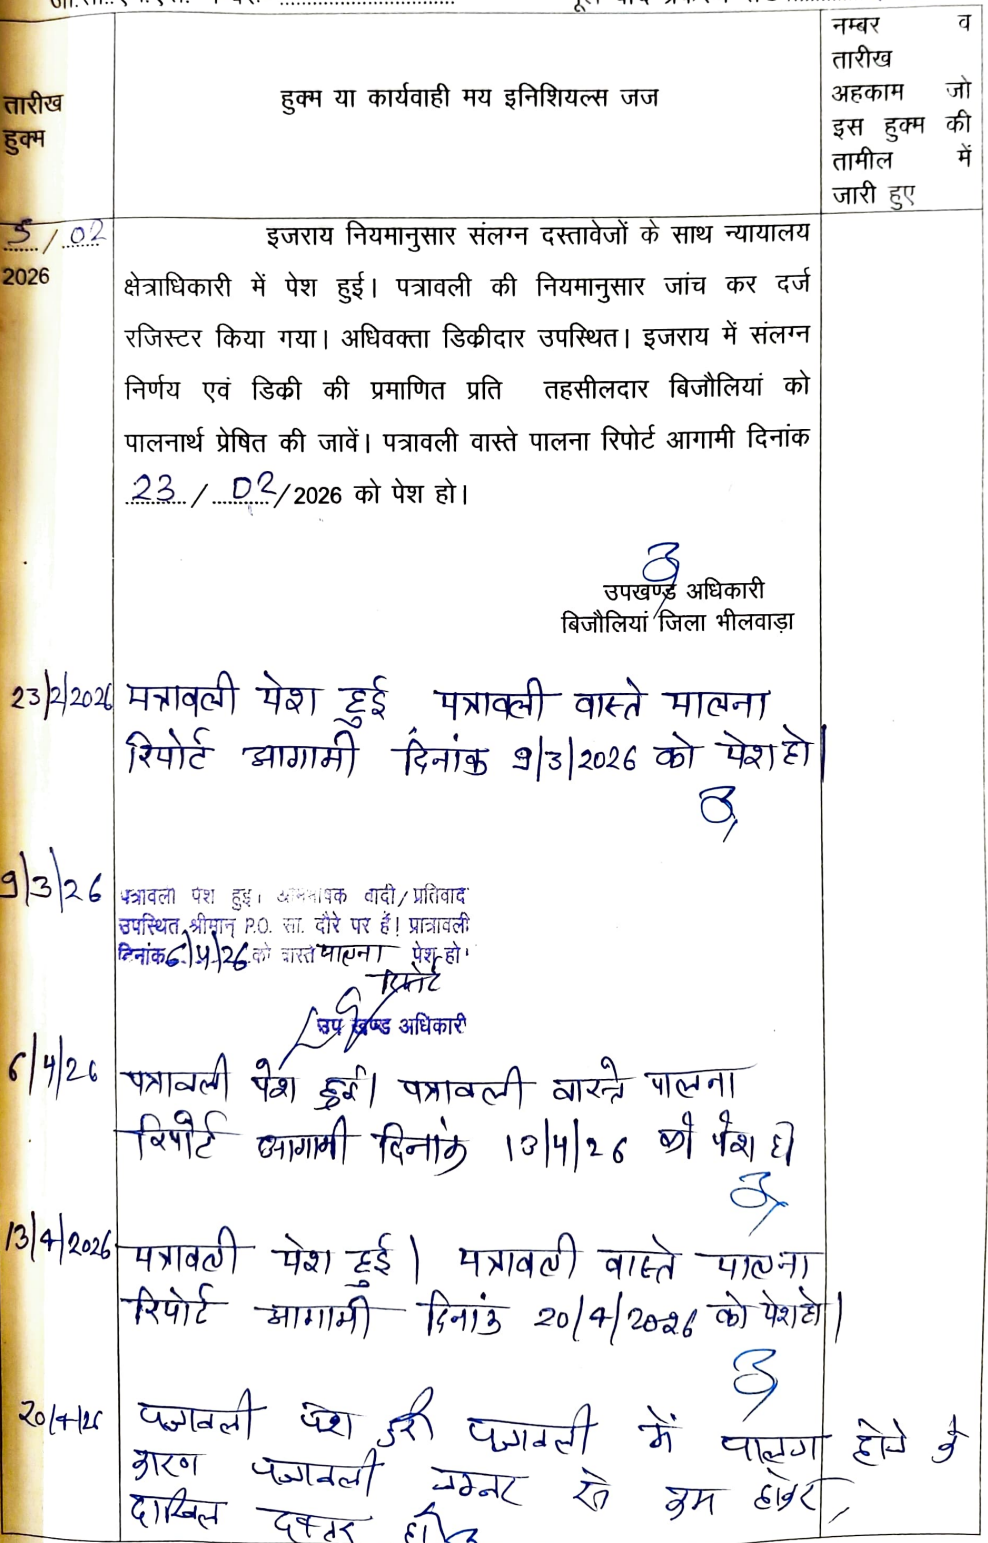 नम्बर व
तारीख
अहकाम जो
इस हुक्म की
तामील में
जारी हुए
तारीख
हुक्म
हुक्म या कार्यवाही मय इनिशियल्स जज
5/02
2026
इजराय नियमानुसार संलग्न दस्तावेजों के साथ न्यायालय
क्षेत्राधिकारी में पेश हुई। पत्रावली की नियमानुसार जांच कर दर्ज
रजिस्टर किया गया। अधिवक्ता डिक्रीदार उपस्थित। इजराय में संलग्न
निर्णय एवं डिक्री की प्रमाणित प्रति तहसीलदार बिजौलियां को
पालनार्थ प्रेषित की जावें। पत्रावली वास्ते पालना रिपोर्ट आगामी दिनांक
23/02/2026 को पेश हो।
उपखण्ड अधिकारी
बिजौलियां जिला भीलवाड़ा
23/2/2026 पत्रावली पेश हुई पत्रावली वास्ते पालना
रिपोर्ट आगामी दिनांक 9/3/2026 को पेश हो।
9/3/26 पत्रावली पेश हुई। अभिभाषक वादी/प्रतिवाद
उपस्थित, श्रीमान् P.O. सा. दौरे पर हैं! प्रात्रावली
दिनांक 6/4/26 को वास्ते पालना पेश हो।
रिपोर्ट
उप खण्ड अधिकारी
6/4/26 पत्रावली पेश हुई। पत्रावली वास्ते पालना
रिपोर्ट आगामी दिनांक 13/4/26 को पेश हो
13/4/2026 पत्रावली पेश हुई। पत्रावली वास्ते पालना
रिपोर्ट आगामी दिनांक 20/4/2026 को पेश हो।
20/4/26 पत्रावली पेश हुई पत्रावली में पालना होने के
कारण पत्रावली नम्बर से कम होकर
दाखिल दफ्तर हो